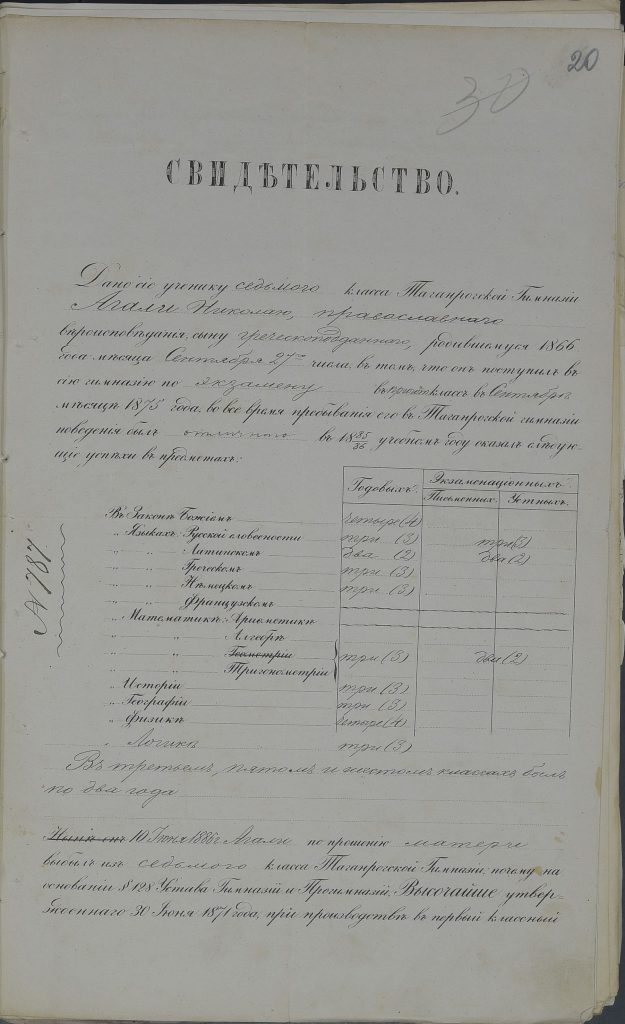 20
30
СВИДѢТЕЛЬСТВО.
Дано сіе ученику седьмого класса Таганрогской Гимназіи
Агали Николаю, православнаго
вѣроисповѣданія, сыну грекоподданного, родившемуся 1866
года мѣсяца Сентября 27го числа, въ томъ, что онъ поступилъ въ
сію гимназію по экзамену въ классъ въ Сентябрѣ
мѣсяцѣ 1875 года, во все время пребыванія его въ Таганрогской гимназіи
поведенія былъ отличнаго въ 1885/86 учебномъ году оказалъ слѣдую-
щіе успѣхи въ предметахъ:
Годовыхъ. Экзаменаціонныхъ.
Письменныхъ. Устныхъ.
Въ Законѣ Божіемъ четыре (4)
„ Языкахъ: Русской словесности три (3) три (3)
„ „ Латинскомъ два (2) два (2)
„ „ Греческомъ три (3)
„ „ Нѣмецкомъ три (3)
„ „ Французскомъ
„ Математикѣ: Ариѳметикѣ
„ „ Алгебрѣ
„ „ Геометріи три (3) два (2)
„ „ Тригонометріи
„ Исторіи три (3)
„ Географіи три (3)
„ Физикѣ четыре (4)
„ Логикѣ три (3)
Въ третьемъ, пятомъ и шестомъ классахъ былъ
по два года
Нынѣ онъ 10 Іюня 1886 г Агали по прошенію матери
выбылъ изъ седьмого класса Таганрогской Гимназіи, почему на
основаніи § 128 Устава Гимназій и Прогимназій, Высочайше утвер-
жденнаго 30 Іюня 1871 года, при производствѣ въ первый классный
N 787